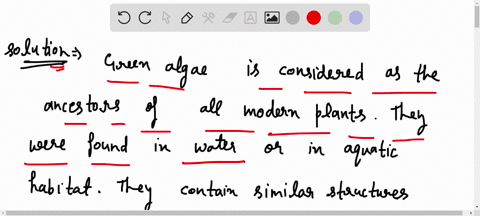 solution:⇒ Green algae is considered as the
ancestors of all modern plants. They
were found in water or in aquatic
habitat. They contain similar structures